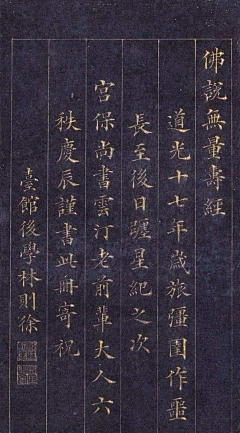 佛說無量壽經
道光十七年歲旅彊圉作噩
長至後日躔星紀之次
宮保尚書雲汀老前輩大人六
秩慶辰謹書此冊寄祝
臺館後學林則徐